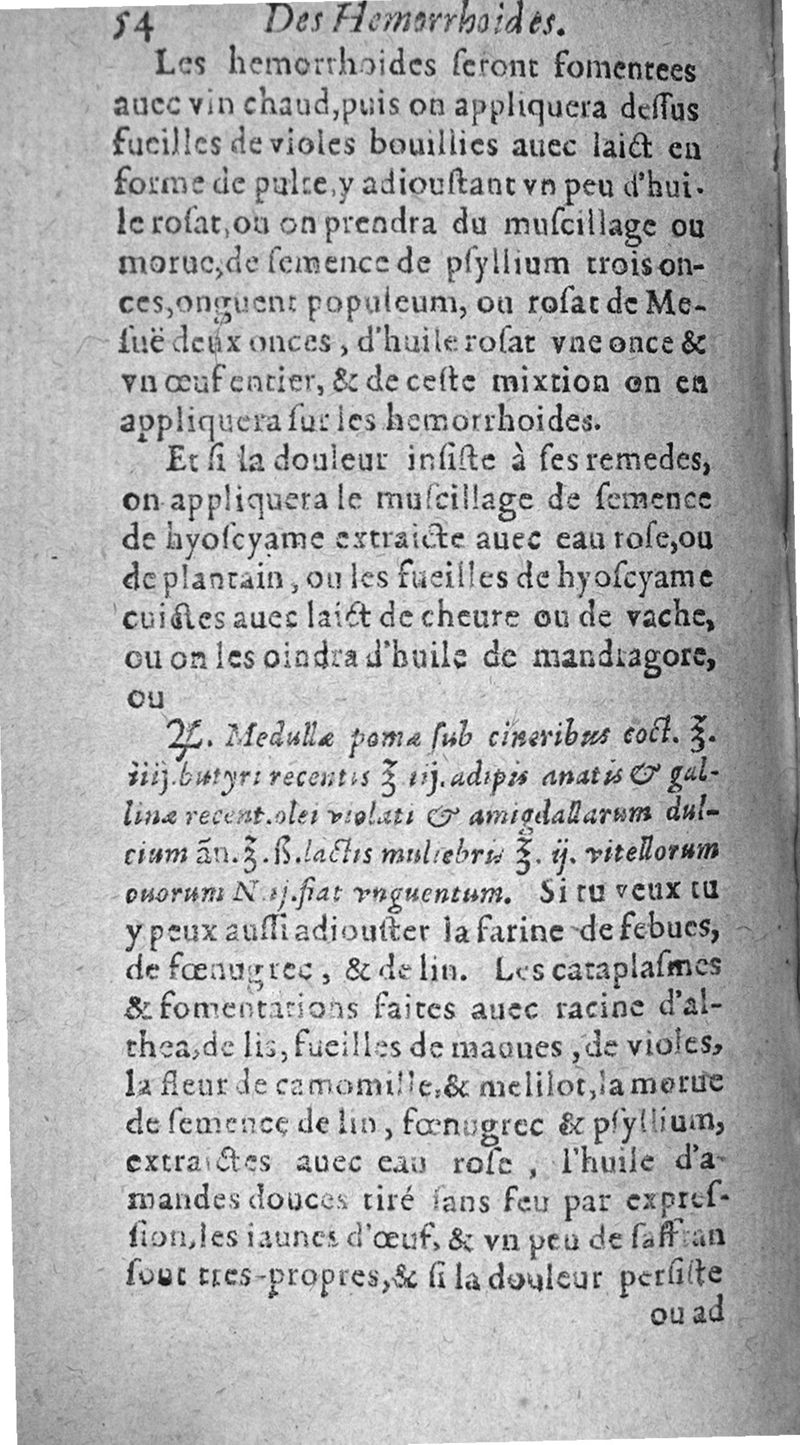 54 Des Hemorrhoides.
Les hemorrhoides ſeront fomentees
auec vin chaud, puis on appliquera deſſus
fueilles de violes bouillies auec laict en
forme de pulte, y adiouſtant vn peu d'hui-
le roſat, ou on prendra du muſcillage ou
morue, de ſemence de pſyllium trois on-
ces, onguent populeum, ou roſat de Me-
ſuë deux onces, d'huile roſat vne once &
vn œuf entier, & de ceſte mixtion on en
appliquera ſur les hemorrhoides.
Et ſi la douleur inſiſte à ſes remedes,
on appliquera le muſcillage de ſemence
de hyoſcyame extraicte auec eau roſe, ou
de plantain, ou les fueilles de hyoſcyame
cuictes auec laict de cheure ou de vache,
ou on les oindra d'huile de mandragore,
ou
♃. Medullæ pomæ ſub cineribus coct. ℥.
iiij. butyri recentis ℥ iij. adipis anatis & gal-
linæ recent. olei violati & amigdallarum dul-
cium ãn. ℥. ß. lactis muliebris ℥. ij. vitellorum
ouorum N. ij. fiat vnguentum. Si tu veux tu
y peux auſſi adiouſter la farine de febues,
de fœnugrec, & de lin. Les cataplaſmes
& fomentations faites auec racine d'al-
thea, de lis, fueilles de maoues, de violes,
la fleur de camomille, & melilot, la morue
de ſemence de lin, fœnugrec & pſyllium,
extraictes auec eau roſe, l'huile d'a-
mandes douces tiré ſans feu par expreſ-
ſion, les iaunes d'œuf, & vn peu de ſaffran
ſont tres-propres, & ſi la douleur perſiſte
ou ad